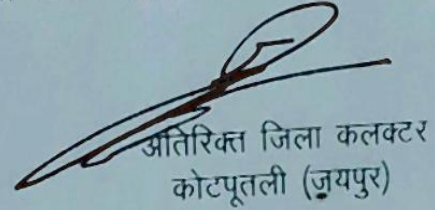 अतिरिक्त जिला कलक्टर
कोटपूतली (जयपुर)